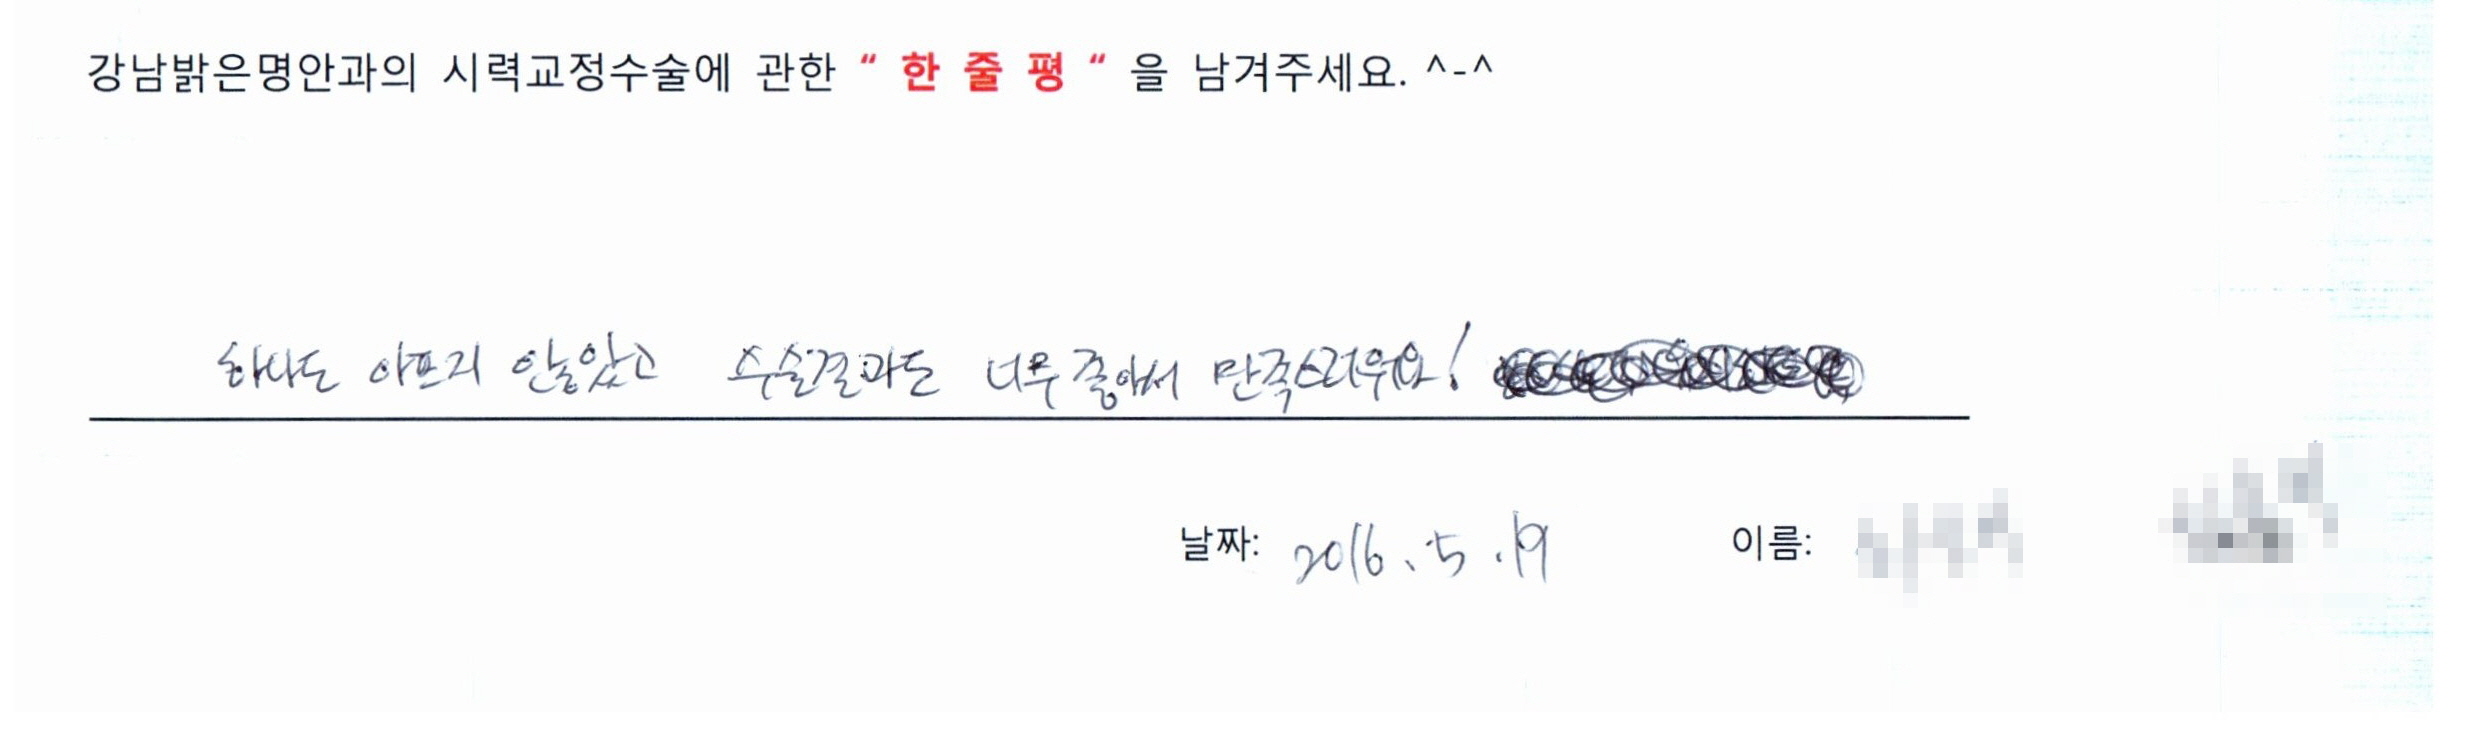 강남밝은명안과의 시력교정수술에 관한 “ 한 줄 평 “ 을 남겨주세요. ^-^
하나도 아프지 않았고 수술결과도 너무 좋아서 만족스러워요!
날짜: 2016. 5. 19 이름: